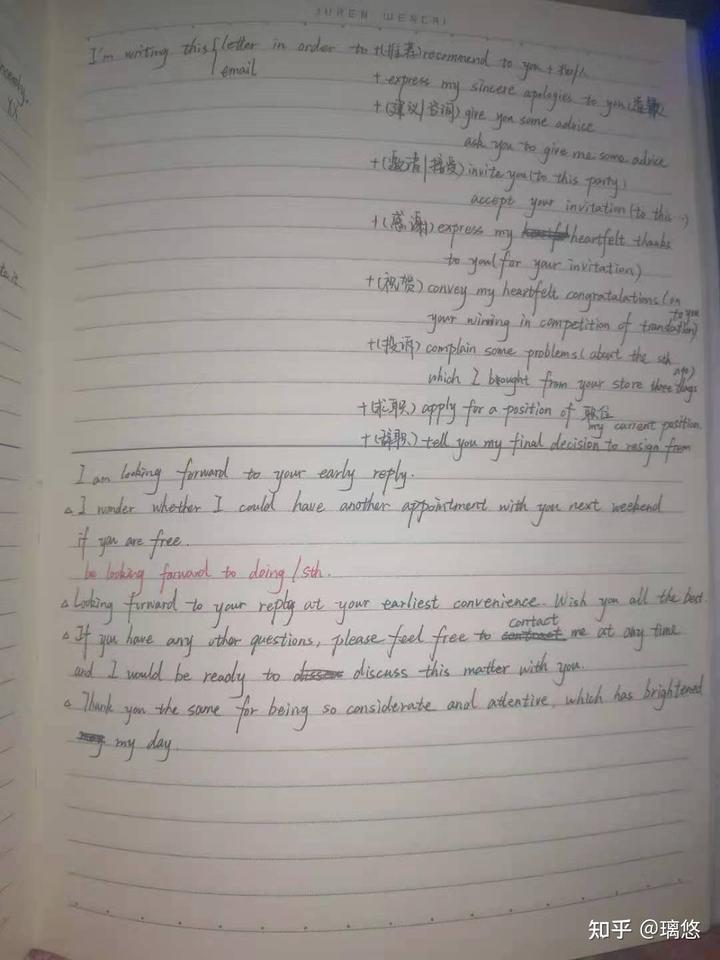 JUREN WENCAI
I'm writing this letter in order to +(推荐) recommend to you +
email + express my sincere apologies to you (道歉)
+ (建议|咨询) give you some advice
ask you to give me some advice
+ (邀请|接受) invite you (to this party)
accept your invitation (to this ..)
+ (感谢) express my heartfelt thanks
to you (for your invitation)
+ (祝贺) convey my heartfelt congratalations (on
to you
your winning in competition of translation)
+ (投诉) complain some problems (about the sth
ago)
which I brought from your store three days
+ (求职) apply for a position of 职位
my current position.
+ (辞职) tell you my final decision to resign from
I am looking forward to your early reply.
△ I wonder whether I could have another appointment with you next weekend
if you are free.
be looking forward to doing / sth.
△ Looking forward to your reply at your earliest convenience. Wish you all the best.
contact
△ If you have any other questions, please feel free to me at any time
and I would be ready to discuss this matter with you.
△ Thank you the same for being so considerate and attentive, which has brightened
my day.
知乎 @璃悠